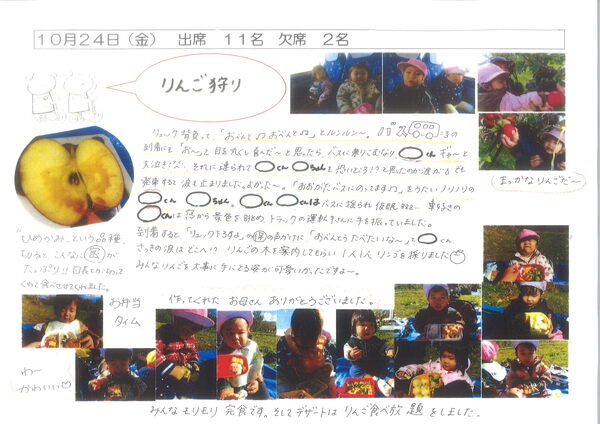 10月24日（金） 出席 11名 欠席 2名
りんご狩り
リュック背負って、「おべんと♫おべんと♫」とルンルン〜。バス
到着にも「お〜」と目を丸くし
と思ったら、バスに乗りこむなり、◯くんギャ〜と
大泣き!! それに連られて◯くん◯ちゃんも
と思ったが
発車すると涙も止まりました。よかった〜。「おおがたバスにのってます♫」をうたいノリノリの
◯くん ◯ちゃん。◯くん ◯くんはバスに揺られ仮眠
◯くんは窓から景色を眺め、トラックの運転手さんに手を振っていました。
到着すると「リュックをするよ」の声かけに「おべんとうたべたいな〜」って◯くん
さっきの涙はどこへ!? りんごの木を案内してもらい1人1人リンゴを採りました
みんなりんごを大事に手にとる姿が可愛いかったですよ〜。
まっかなりんごだ〜
"ひめかみ"という品種。
切ると、こんなに蜜が
たっぷり!! 目の前で切って
くれて食べさせてくれました。
お弁当
タイム
作ってくれた お母さん ありがとうございました。
わ〜
かわいい♡
みんなモリモリ 完食です。そしてデザートは りんご食べ放題 をしました。